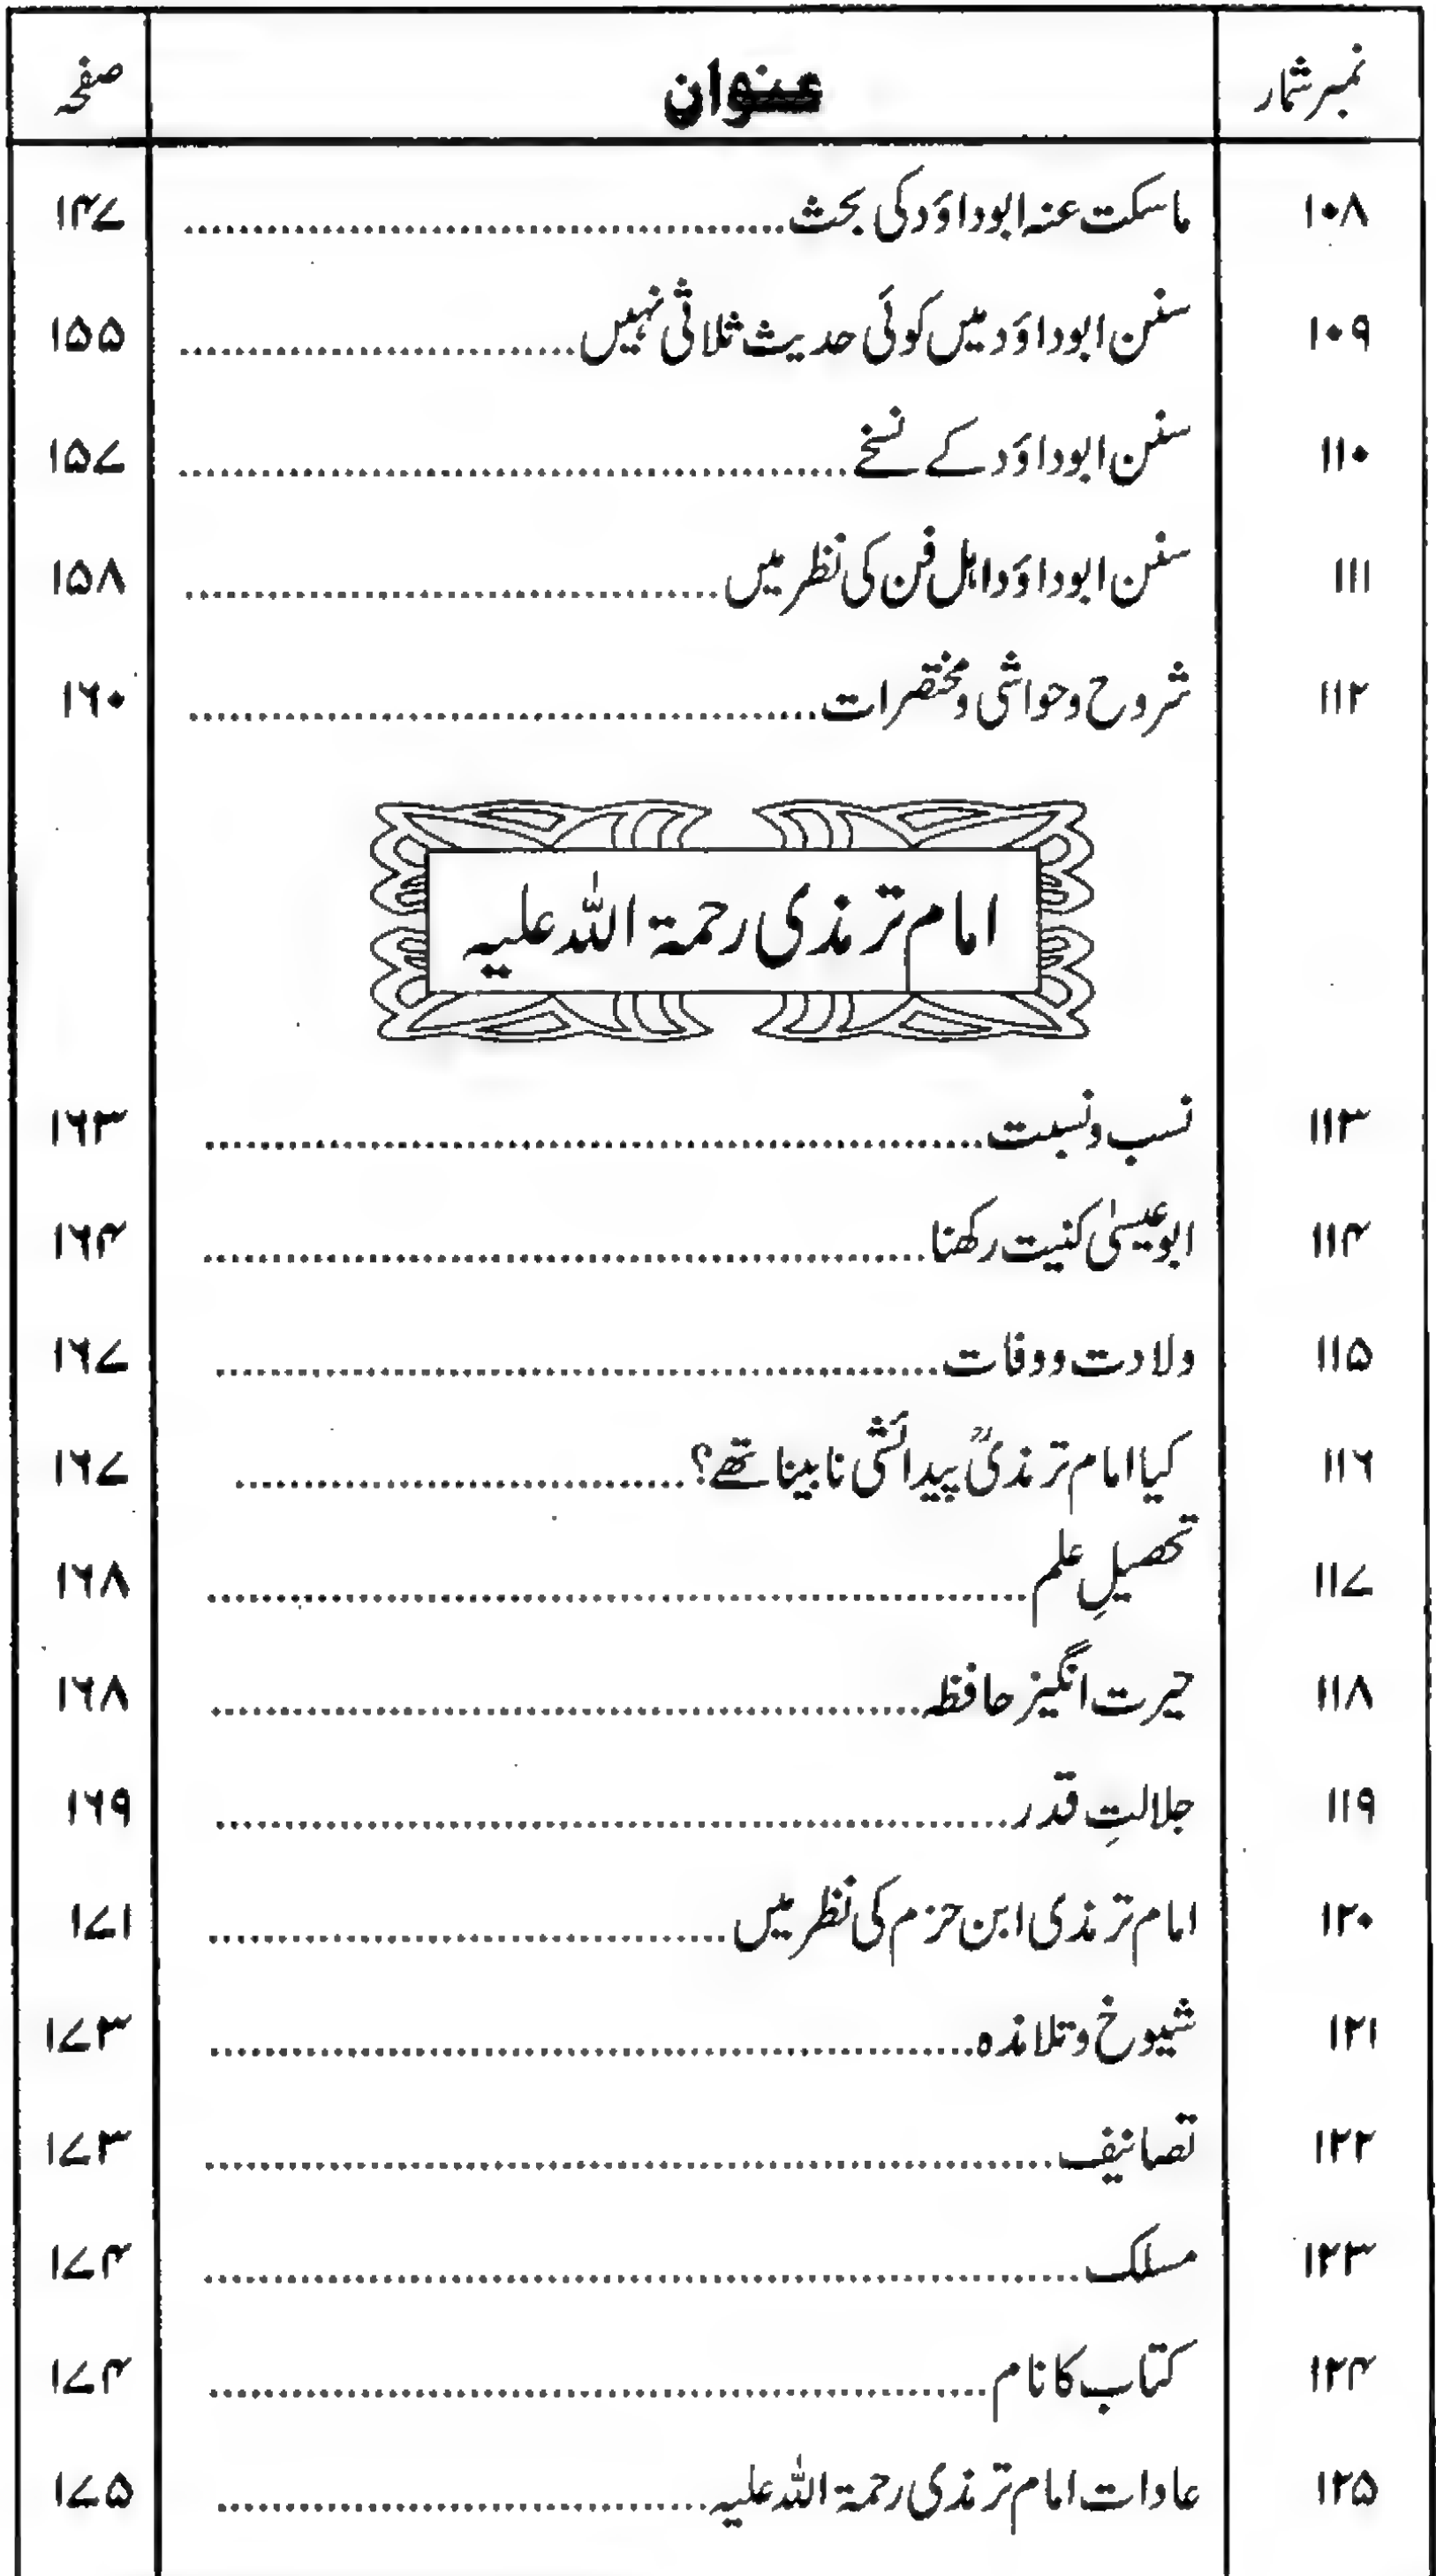 نمبر شمار عنوان صفحہ
۱۰۸ ما سکت عنہ ابوداؤد کی بحث ۱۴۷
۱۰۹ سنن ابوداؤد میں کوئی حدیث ثلاثی نہیں ۱۵۵
۱۱۰ سنن ابوداؤد کے نسخے ۱۵۷
۱۱۱ سنن ابوداؤد اہل فن کی نظر میں ۱۵۸
۱۱۲ شروح وحواشی ومختصرات ۱۶۰
امام ترمذی رحمۃ اللہ علیہ
۱۱۳ نسب ونسبت ۱۶۳
۱۱۴ ابوعیسیٰ کنیت رکھنا ۱۶۴
۱۱۵ ولادت ووفات ۱۶۷
۱۱۶ کیا امام ترمذیؒ پیدائشی نابینا تھے؟ ۱۶۷
۱۱۷ تحصیلِ علم ۱۶۸
۱۱۸ حیرت انگیز حافظہ ۱۶۸
۱۱۹ جلالتِ قدر ۱۶۹
۱۲۰ امام ترمذی ابن حزم کی نظر میں ۱۷۱
۱۲۱ شیوخ وتلامذہ ۱۷۳
۱۲۲ تصانیف ۱۷۳
۱۲۳ مسلک ۱۷۴
۱۲۴ کتاب کا نام ۱۷۴
۱۲۵ عادات امام ترمذی رحمۃ اللہ علیہ ۱۷۵